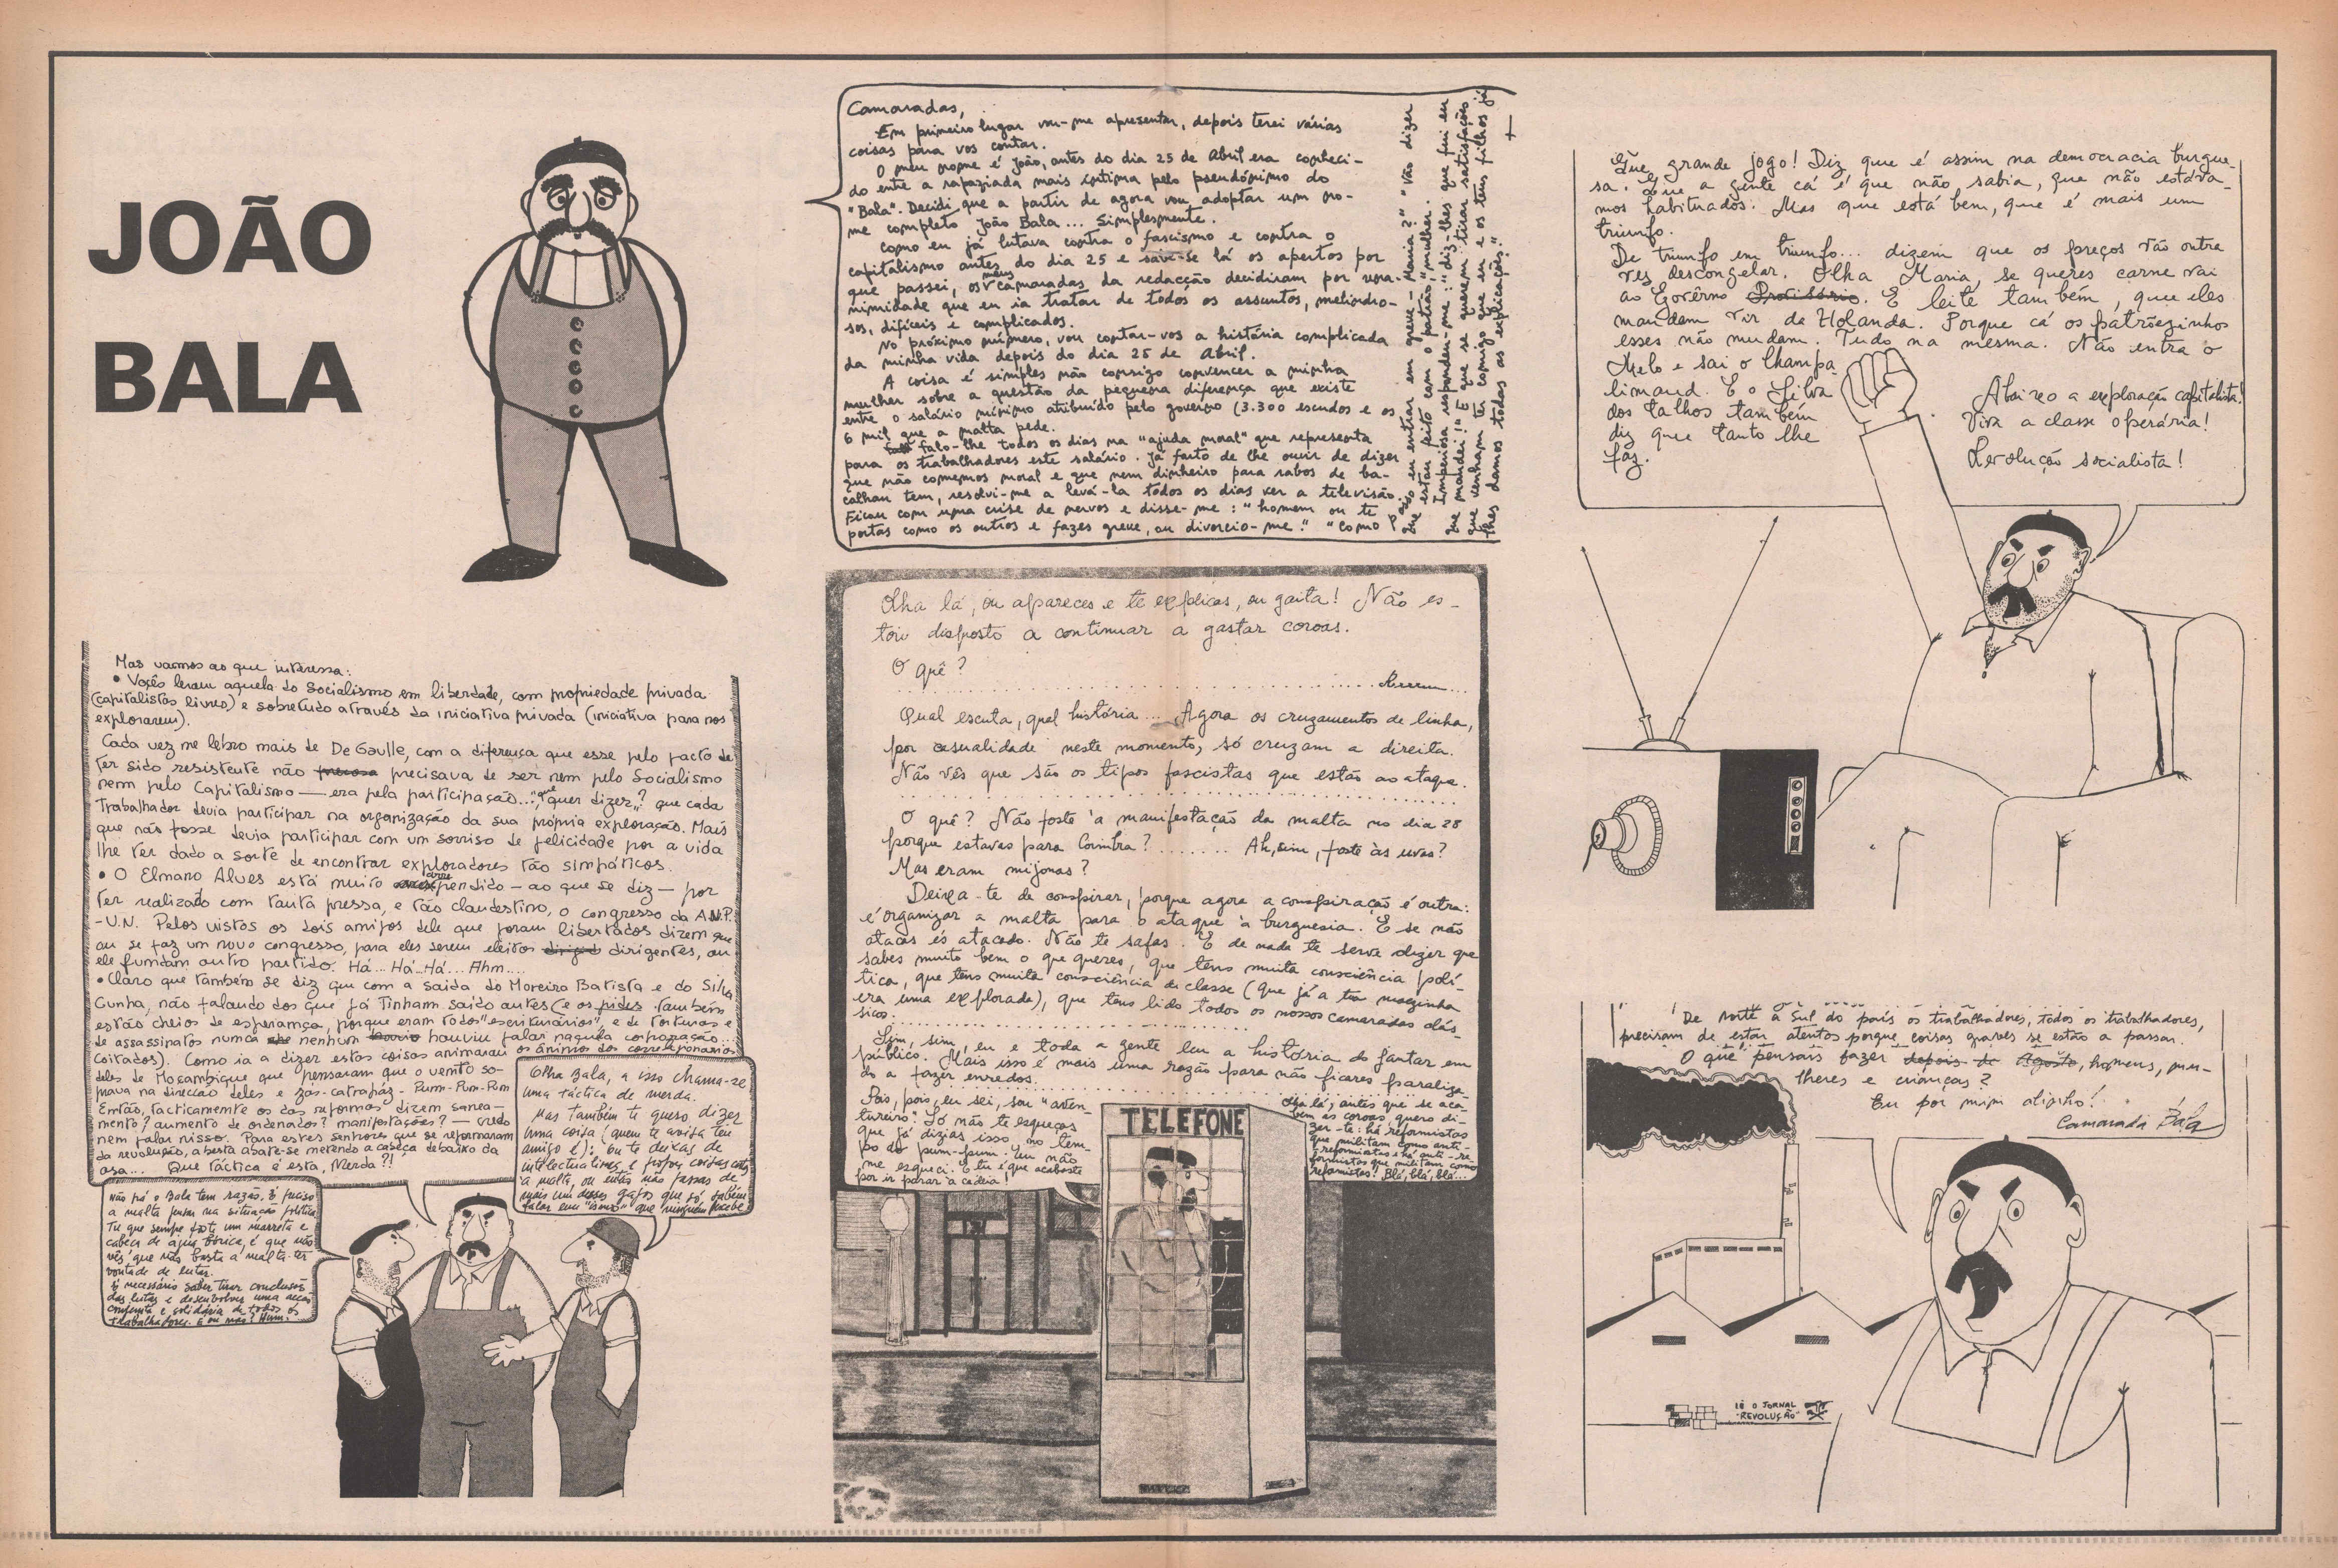 JOÃO
BALA
Camaradas,
Em primeiro lugar vou-me apresentar, depois terei várias
coisas para vos contar.
O meu nome é João, antes do dia 25 de Abril era conheci-
do entre a rapaziada mais íntima pelo pseudónimo do
"Bala". Decidi que a partir de agora vou adoptar um no-
me completo João Bala... Simplesmente.
Como eu já lutava contra o fascismo e contra o
capitalismo antes do dia 25 e sabe-se lá os apertos por
que passei, os meus camaradas da redacção decidiram por una-
nimidade que eu ia tratar de todos os assuntos, melindro-
sos, difíceis e complicados.
No próximo número, vou contar-vos a história complicada
da minha vida depois do dia 25 de Abril.
A coisa é simples não consigo convencer a minha
mulher sobre a questão da pequena diferença que existe
entre o salário mínimo atribuído pelo governo (3.300 escudos e os
6 mil que a malta pede.
falo-lhe todos os dias na "ajuda moral" que representa
para os trabalhadores este salário. Já farto de lhe ouvir de dizer
que não comemos moral e que nem dinheiro para rabos de ba-
calhau tem, resolvi-me a levá-la todos os dias ver a televisão.
Ficou com uma crise de nervos e disse-me: "homem ou te
portas como os outros e fazes greve, ou divorcio-me." "Como?
Posso eu entrar em greve - Maria?" "Vão dizer
que estou feito com o patrão, mulher.
Imperiosa respondeu-me: "diz-lhes que fui eu
que mandei!" E que se querem tirar satisfações
que venham ter comigo que eu e os teus filhos já
lhes damos todas as explicações."
Mas vamos ao que interessa:
• Vocês leram aquela do Socialismo em liberdade, com propriedade privada
(capitalistas livres) e sobretudo através da iniciativa privada (iniciativa para nos
explorarem).
Cada vez me lebro mais de De Gaulle, com a diferença que esse pelo facto de
ter sido resistente não precisava de ser nem pelo Socialismo
nem pelo Capitalismo — era pela participação... "que quer dizer"? que cada
Trabalhador devia participar na organização da sua própria exploração. Mais
que não fosse devia participar com um sorriso de felicidade por a vida
lhe ter dado a sorte de encontrar exploradores tão simpáticos.
• O Elmano Alves está muito arrependido — ao que se diz — por
ter realizado com tanta pressa, e tão clandestino, o congresso da A.N.P.
-U.N. Pelos vistos os dois amigos dele que foram libertados dizem que
ou se faz um novo congresso, para eles serem eleitos dirigentes, ou
ele fundam outro partido. Há... Há... Há... Ahm....
• Claro que também se diz que com a saida do Moreira Batista e do Silva
Cunha, não falando dos que já Tinham saido antes (e os pides também
estão cheios de esperança, porque eram todos "escriturários", e de torturas e
de assassinatos nunca nenhum houviu falar naquela corporação...
coitados). Como ia a dizer estas coisas animaram os ânimos dos correlegionários
deles de Moçambique que pensaram que o vento so-
prava na direcção deles e zás-catrapáz. Pum-Pum-Pum
Então, tacticamente os das reformas dizem sanea-
mento? aumento de ordenados? manifestações? — vudo
nem falar nisso. Para estes senhores que se reformaram
da revolução, a besta abate-se metendo a cabeça debaixo da
asa... Que táctica é esta, Merda?!
Olha Bala, a isso chama-se
uma táctica de merda.
Mas também te quero dizer
uma coisa (quem te avisa teu
amigo é): ou te deixas de
intelectualismos e propões coisas
à malta, ou então não passas de
mais um desses gajos que só sabem
falar em "ismos" que ninguém percebe
Não pá o Bala tem razão. É preciso
a malta pensar na situação política
Tu que sempre foste um marreta e
cabeça de água bórica, é que não
vês que não basta a malta ter
vontade de lutar.
É necessário saber tirar conclusões
das lutas e desenvolver uma acção
conjunta e solidária de todos os
trabalhadores. É ou não? Hum!
Olha lá, ou apareces e te explicas, ou gaita! Não es-
tou disposto a continuar a gastar coroas.
O quê?
Qual escuta, qual história... Agora os cruzamentos de linha,
por casualidade neste momento, só cruzam a direita.
Não vês que são os tipos fascistas que estão ao ataque.
O quê? Não foste à manifestação da malta no dia 28
porque estavas para Coimbra?....... Ah, sim, foste às uvas?
Mas eram mijonas?
Deixa-te de conspirar, porque agora a conspiração é outra:
é organizar a malta para o ataque à burguesia. E se não
atacas és atacado. Não te safas. E de nada te serve dizer que
sabes muito bem o que queres, que tens muita consciência polí-
tica, que tens muita consciência de classe (que já a tua mãezinha
era uma explorada), que tens lido todos os nossos camaradas clás-
sicos.
Sim, sim, eu e toda a gente leu a história do jantar em
público. Mais isso é mais uma razão para não ficares paraliza-
do a fazer enredos.
Pois, pois, eu sei, sou "aven-
tureiro". Só não te esqueças
que já dizias isso no tem-
po do pum-pum. Eu não
me esqueci. E tu é que acabaste
por ir parar à cadeia!
Olha lá, antes que se aca-
bem as coroas, quero di-
zer-te: há reformistas
que militam como anti-
reformistas e há anti-re-
formistas que militam como
reformistas! Blá, blá, blá...
TELEFONE
Que grande jogo! Diz que é assim na democracia burgue-
sa. Que a gente cá é que não sabia, que não estáva-
mos habituados. Mas que está bem, que é mais um
triunfo.
De triunfo em triunfo... dizem que os preços vão outra
vez descongelar. Olha Maria, se queres carne vai
ao Govêrno Provisório. E leite também, que eles
mandam vir da Holanda. Porque cá os patrõezinhos
esses não mudam. Tudo na mesma. Não entra o
Melo e sai o Champa
limaud. E o Silva
dos talhos também
diz que tanto lhe
faz.
Abaixo a exploração capitalista!
Viva a classe operária!
Revolução socialista!
De Norte a Sul do país os trabalhadores, todos os trabalhadores,
precisam de estar atentos porque coisas graves se estão a passar.
O que pensais fazer depois de Agosto, homens, mu-
lheres e crianças?
Eu por mim alinho!
Camarada Bala
LÊ O JORNAL
"REVOLUÇÃO"